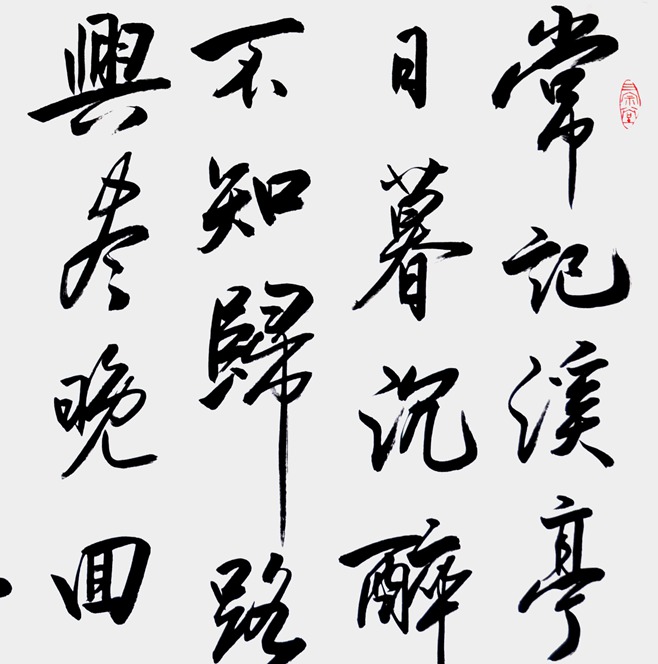 常記溪亭
日暮沉醉
不知歸路
興尽晚回